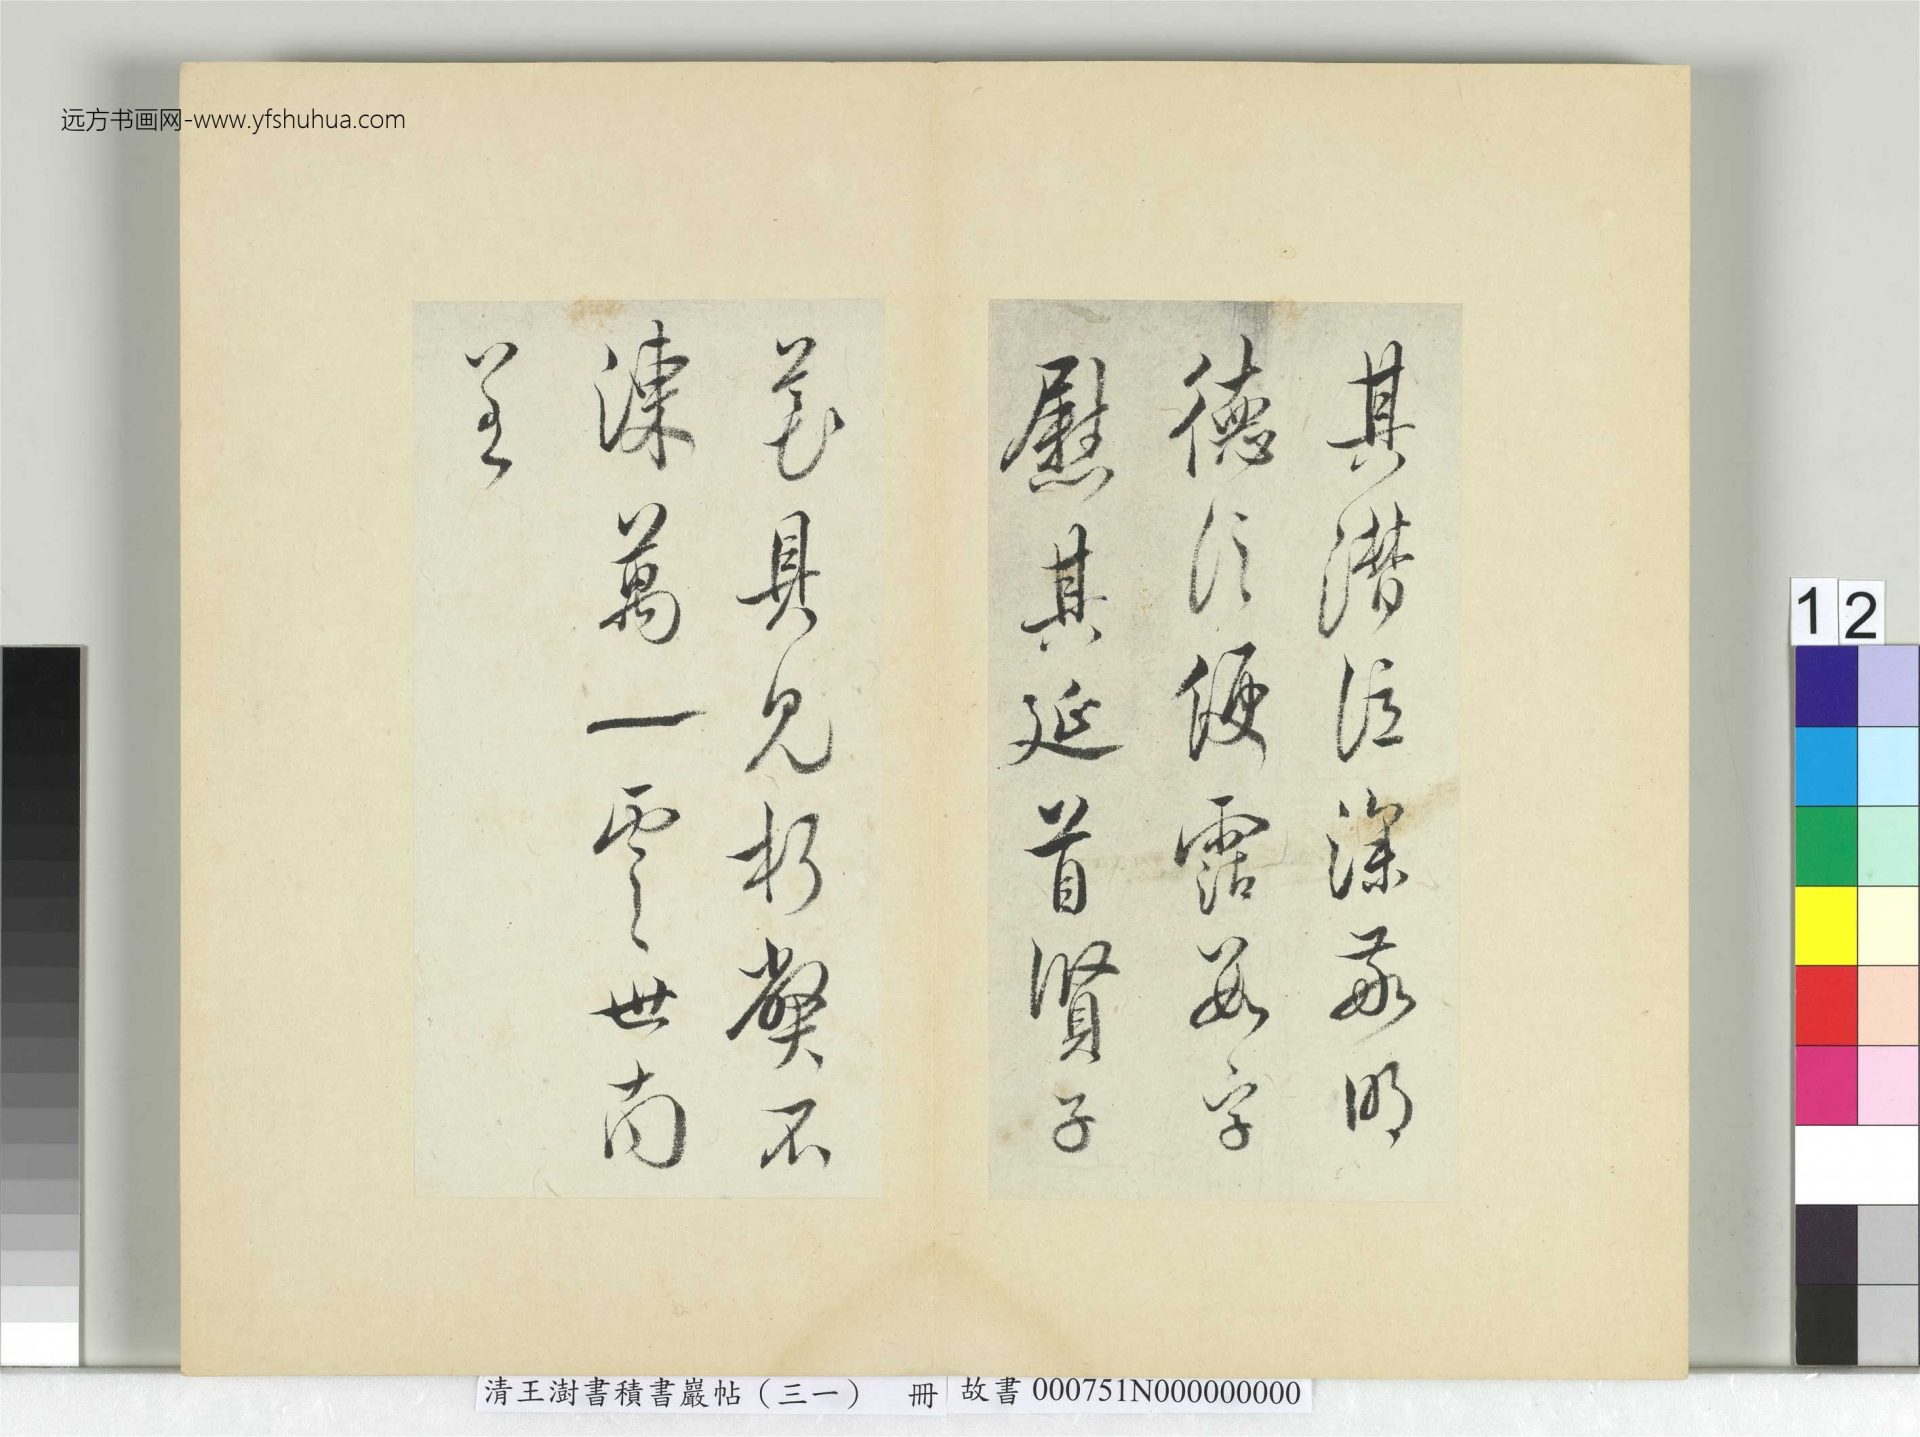 远方书画网-www.yfshuhua.com
其潛位深敬明
德信便霑數字
慰其延首賢子
具見朽弊不
陳萬一虞世南
呈
12
清王澍書積書巖帖(三一) 冊 故書 000751N000000000